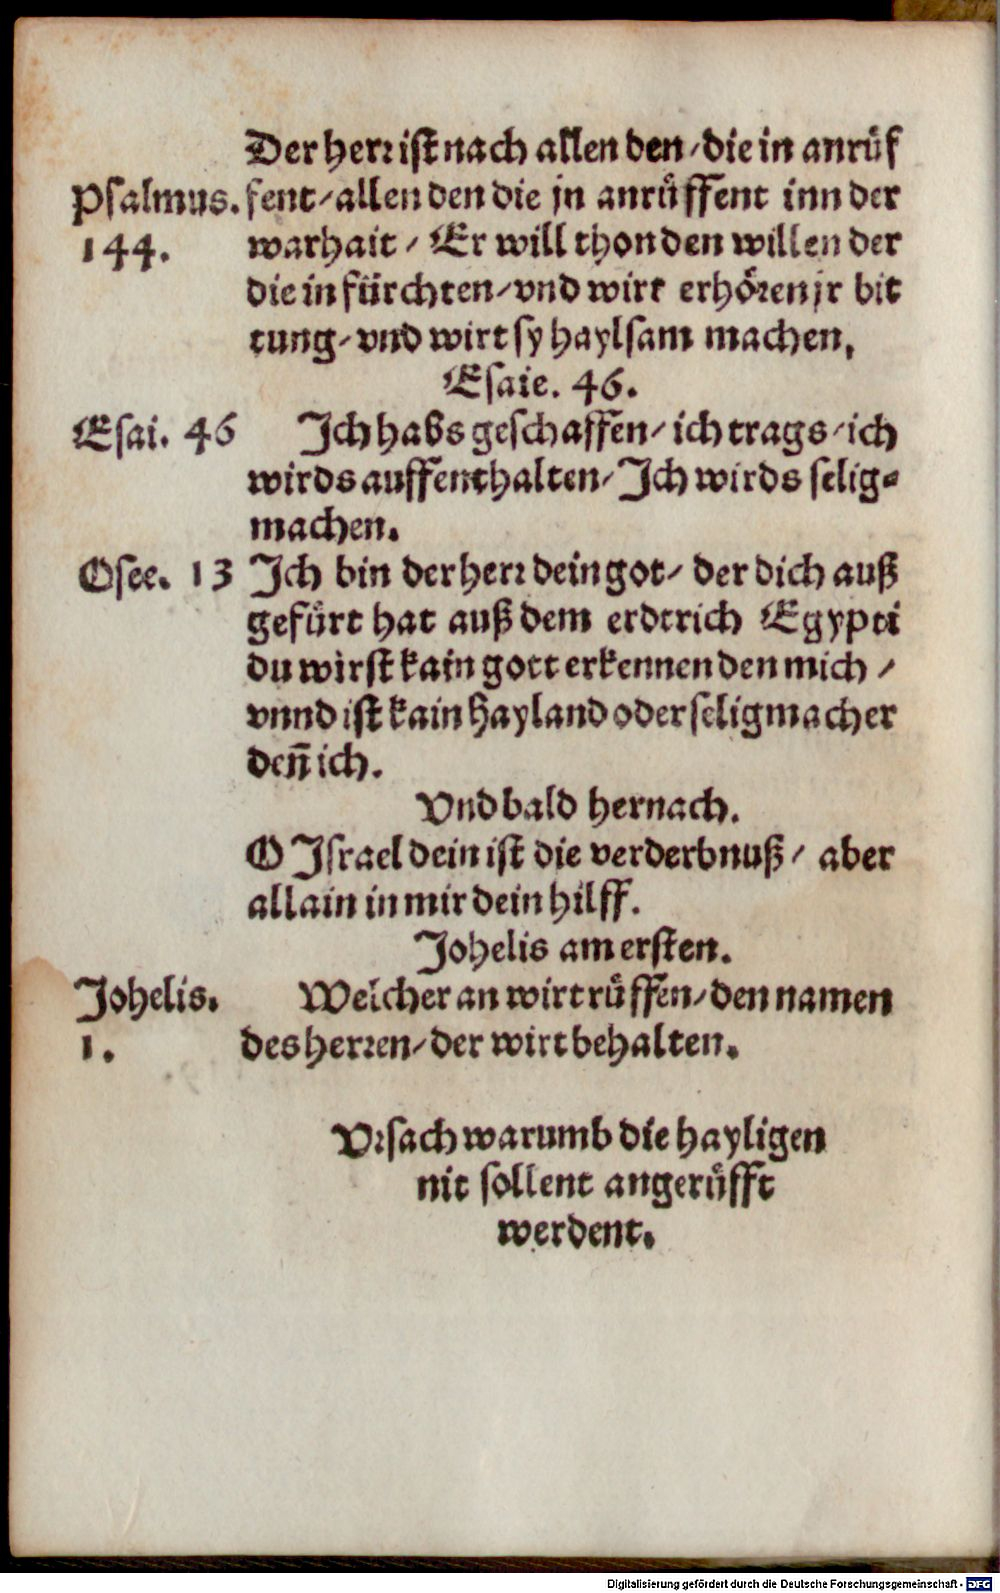 Der herr ist nach allen den / die in anrüf
Psalmus. 144.
fent / allen den die jn anrüffent inn der
warhait / Er will thon den willen der
die in fürchten / vnd wirt erhören jr bit
tung / vnd wirt sy haylsam machen.
Esaie. 46.
Esai. 46
Ich habs geschaffen / ich trags / ich
wirds auffenthalten / Ich wirds selig=
machen.
Osee. 13
Ich bin der herr dein got / der dich auß
gefürt hat auß dem erdtrich Egypti
du wirst kain gott erkennen den mich /
vnnd ist kain hayland oder seligmacher
deñ ich.
Vnd bald hernach.
O Israel dein ist die verderbnuß / aber
allain in mir dein hilff.
Johelis am ersten.
Johelis. 1.
Welcher an wirt rüffen / den namen
des herren / der wirt behalten.
Vrsach warumb die hayligen
nit sollent angerüfft
werdent.
Digitalisierung gefördert durch die Deutsche Forschungsgemeinschaft - DFG